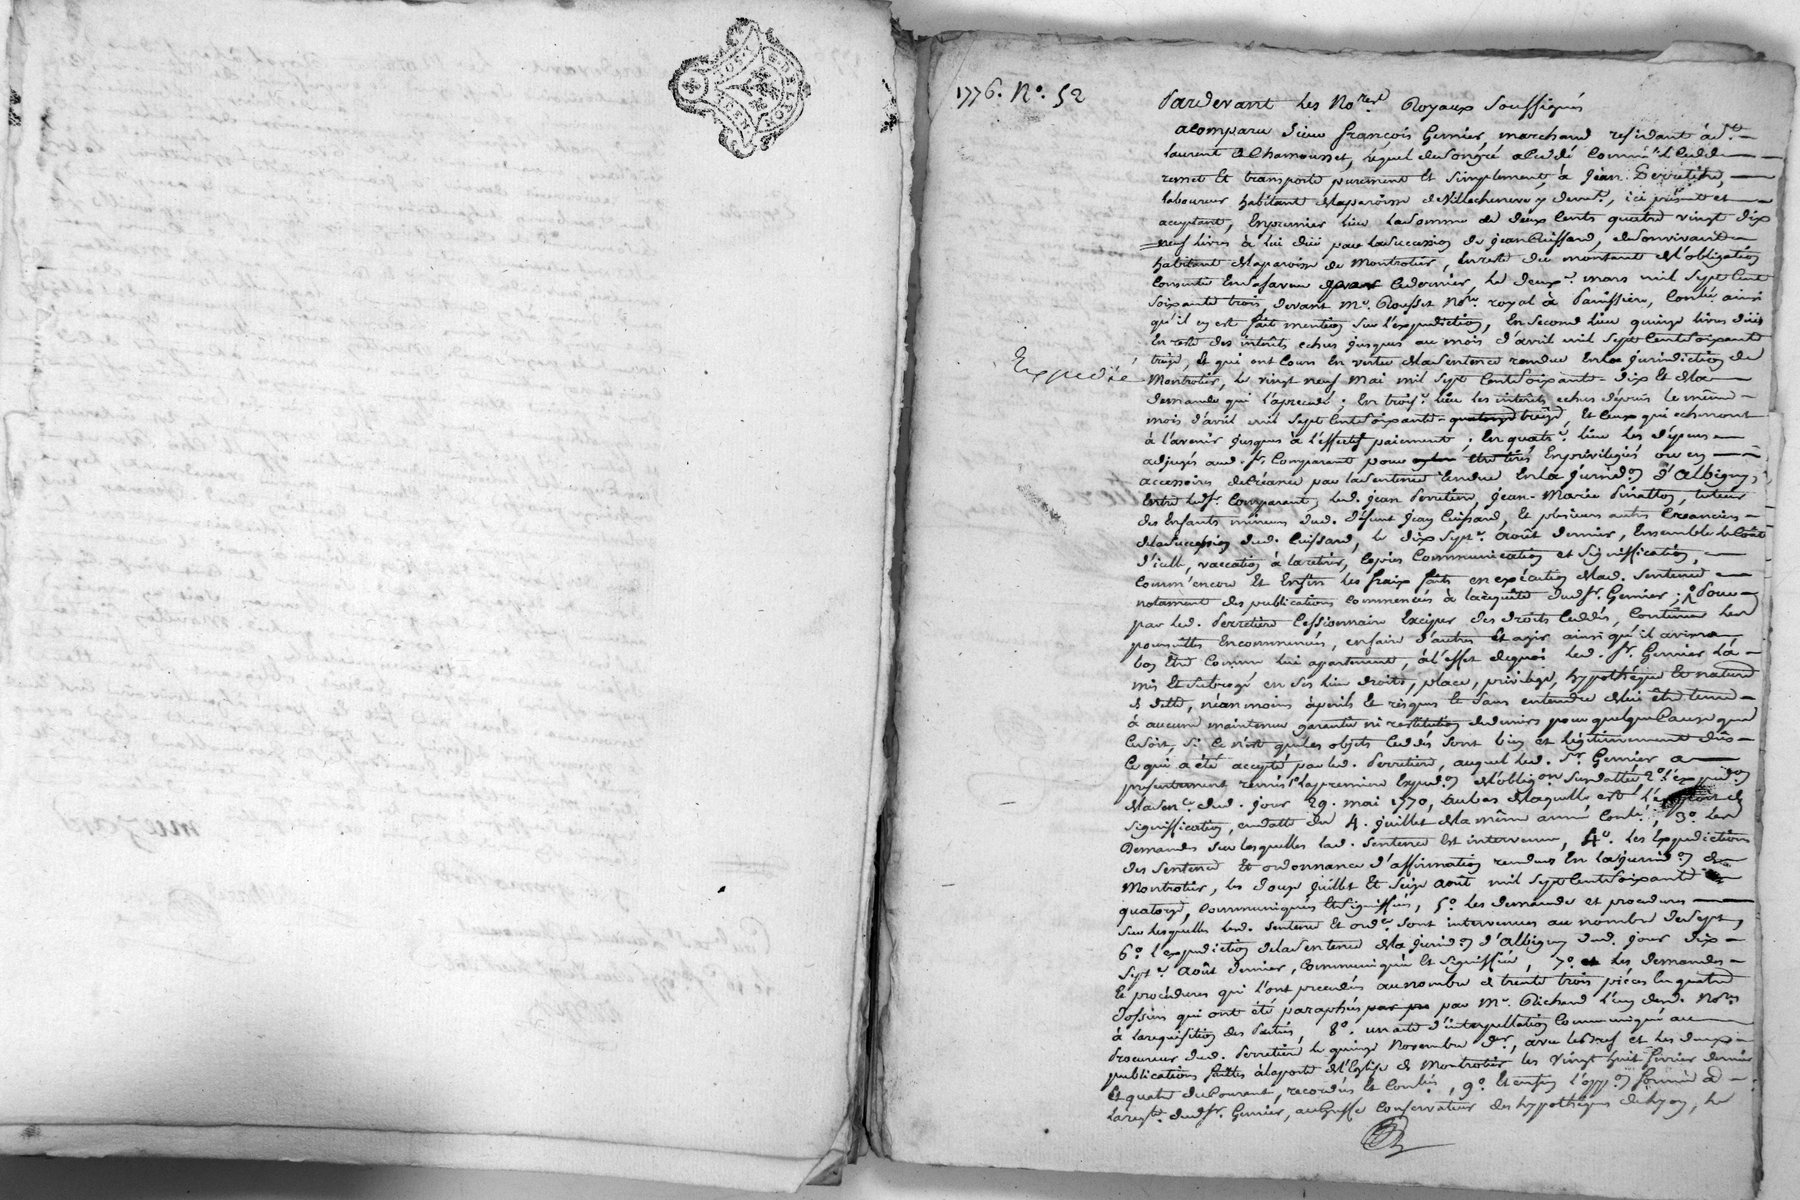 1776. N°. 52
Pardevant les No.res Royaux Soussignés
a comparu Sieur françois Gernier, marchand residant à St.
Laurent de Chamousset, lequel de son gré a cedé comm'il cede
remet et transporte purement et simplement, à Jean Perretiere,
laboureur habitant de la paroisse de Villecheneve y demt., ici présent et
acceptant, En premier lieu la Somme de deux Cents quatre vingt dix
neuf livres à lui düe par la Succession de Jean Cuissard, de son vivant
habitant de la paroisse de Montrotier, En reste du montant de l'obligation
Consentie En sa faveur ce dernier, le deuxe. mars mil Sept Cent
Soixante trois, devant Me. Rousset No.re royal à Panissiere, Contlée ainsi
qu'il en est fait mention Sur l'expedition, En Second lieu quinze livres düs
En reste des intérêts echus jusques au mois d'avril mil Sept Cent Soixante
treize, et qui ont Cours En vertu de la Sentence rendue En la Jurisdiction de
Expediée
Montrotier, le vingt neuf Mai mil Sept Cent Soixante-dix et de la
demande qui l'a precedé; En trois.e lieu les intérêts echus depuis le même
mois d'avril mil Sept Cent Soixante-quatorze treize, et Ceux qui echeront
à l'avenir jusques à l'effectif paiement; En quatr.e lieu les dépens
adjugés aud. Sr. Comparant pour être tirés En privilegiés ou en
accessoires de Créance par la Sentence rendue En la Jurisd.on d'Albigny,
Entre led. Sr. Comparant, led. Jean Perretiere, Jean-Marie Pinatton, tuteur
des Enfants mineurs dud. défunt Jean Cuissard, et plusieurs autres Creanciers
de la Succession dud. Cuissard, le dix Sept.e Août dernier, Ensemble le Coût
d'icelle, vaccation à la retirer, Copies Communication et Signification,
Comm'encore et Enfin les fraix faits en exécution de lad. Sentence
notament des publications commencées à la requête dud. Sr. Gernier; Pour
par led. Perretiere Cessionnaire Exciper des droits Cedés, Continuer les
poursuites Encommencées, en faire d'autres et agir ainsi qu'il avisera
bon être comme lui appartenant, à l'effet de quoi led. Sr. Gernier l'a
mis et subrogé en ses lieu droits, place, privilége, hypothéque et nature
de dette, néanmoins à perils et risques et sans entendre de lui être tenu
à aucune maintenue garantie ni restitution de deniers pour quelque Cause que
ce soit, Si ce n'est que les objets Cedés sont bien et légitimement düs
Ce qui a été accepté par led. Perretiere, auquel led. Sr. Gernier a
présentement remis 1° la premiere Exped.on de l'oblig.on Susdattée 2° l'exped.on
de la Sen.ce dud. jour 29. mai 1770, au bas de laquelle est l'exploit de
Signification, en datte du 4. juillet de la même année Contlé, 3° les
Demandes Sur lesquelles lad. Sentence est intervenue, 4°. les Expeditions
des Sentence et ordonnance d'affirmation rendues En la Jurisd.on de
Montrotier, les douze Juillet et Seize août mil Sept Cent Soixante
quatorze, Communiquées et Signifiées, 5° les demande et procedures
Sur lesquelles lesd. Sentence et ord.ce sont intervenues au nombre de Sept,
6° l'expedition de la Sentence de la Jurisd.on d'Albigny dud. jour dix
Sept.e Août dernier, Communiquée et Signifiée, 7° les demandes
et procédures qui l'ont precedée au nombre de trente trois piéces En quatre
Dossiers qui ont été paraphés par Me. Richard l'un desd. No.res
à la requisition des Parties, 8°. un acte d'interpellation Communiqué au
Procureur dud. Perretiere le quinze Novembre der., avec le Bref et les deux
publications faites à la porte de l'Eglise de Montrotier les Vingt huit fevrier dernier
et quatre du Courant, recordés et Contlés, 9°. Et enfin l'opp.on formée à
la req.te dud. Sr. Gernier, au Greffe Conservateur des hypothéques de Lyon, le